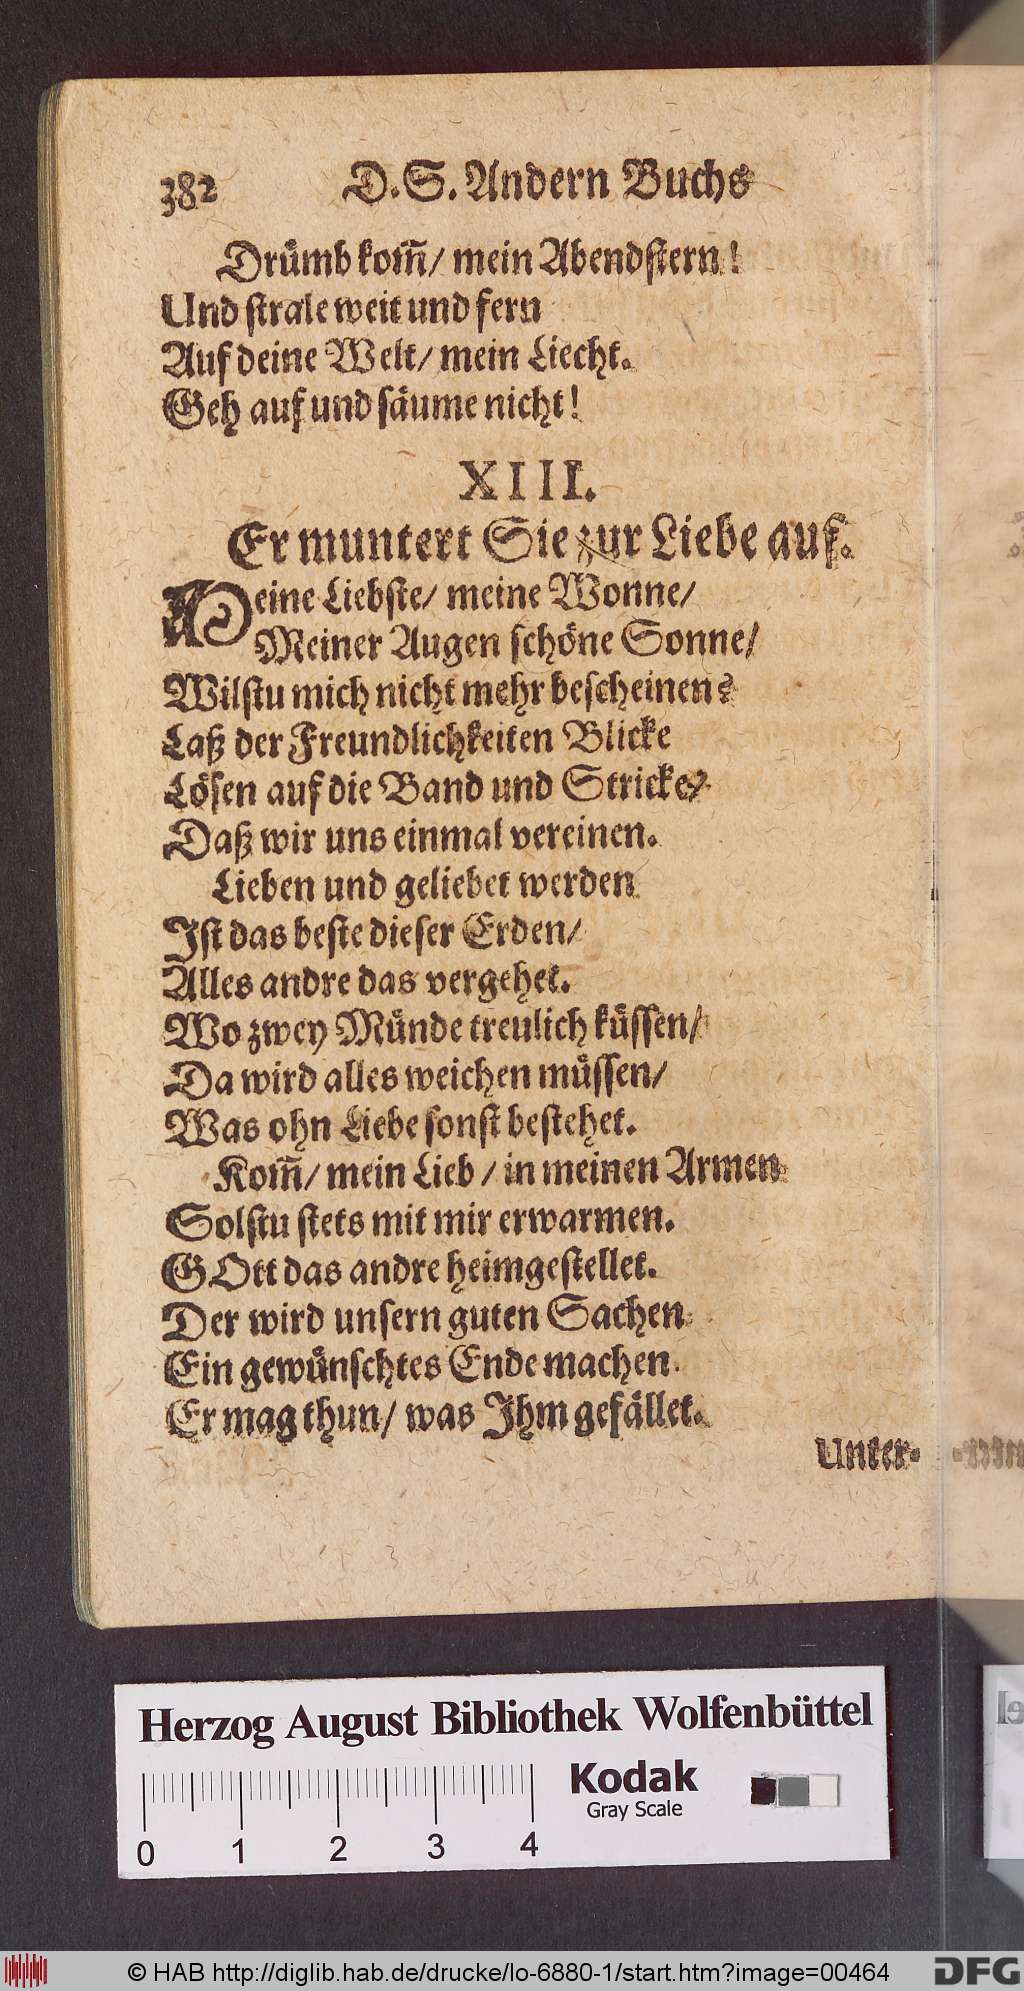 382 D. S. Andern Buchs
Drümb kom̃/ mein Abendstern!
Und strale weit und fern
Auf deine Welt/ mein Liecht.
Geh auf und säume nicht!
XIII.
Er muntert Sie zur Liebe auf.
Meine Liebste/ meine Wonne/
Meiner Augen schöne Sonne/
Wilstu mich nicht mehr bescheinen?
Laß der Freundlichkeiten Blicke
Lösen auf die Band und Stricke/
Daß wir uns einmal vereinen.
Lieben und geliebet werden
Ist das beste dieser Erden/
Alles andre das vergehet.
Wo zwey Münde treulich küssen/
Da wird alles weichen müssen/
Was ohn Liebe sonst bestehet.
Kom̃/ mein Lieb/ in meinen Armen
Solstu stets mit mir erwarmen.
GOtt das andre heimgestellet.
Der wird unsern guten Sachen
Ein gewünschtes Ende machen.
Er mag thun/ was Ihm gefället.
Unter-
Herzog August Bibliothek Wolfenbüttel
Kodak
Gray Scale
0 1 2 3 4
© HAB http://diglib.hab.de/drucke/lo-6880-1/start.htm?image=00464
DFG